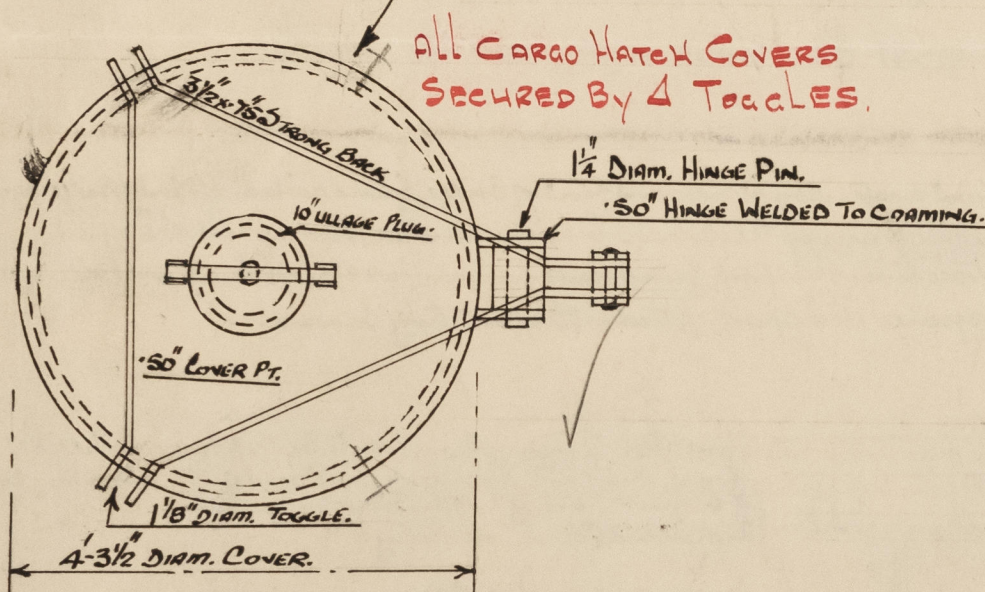 ALL CARGO HATCH COVERS
SECURED BY 4 TOGGLES.
3½" x .75" STRONG BACK
1¼" DIAM. HINGE PIN.
.50" HINGE WELDED TO COAMING.
10" ULLAGE PLUG.
.50" COVER PT.
1⅛" DIAM. TOGGLE.
4'-3½" DIAM. COVER.